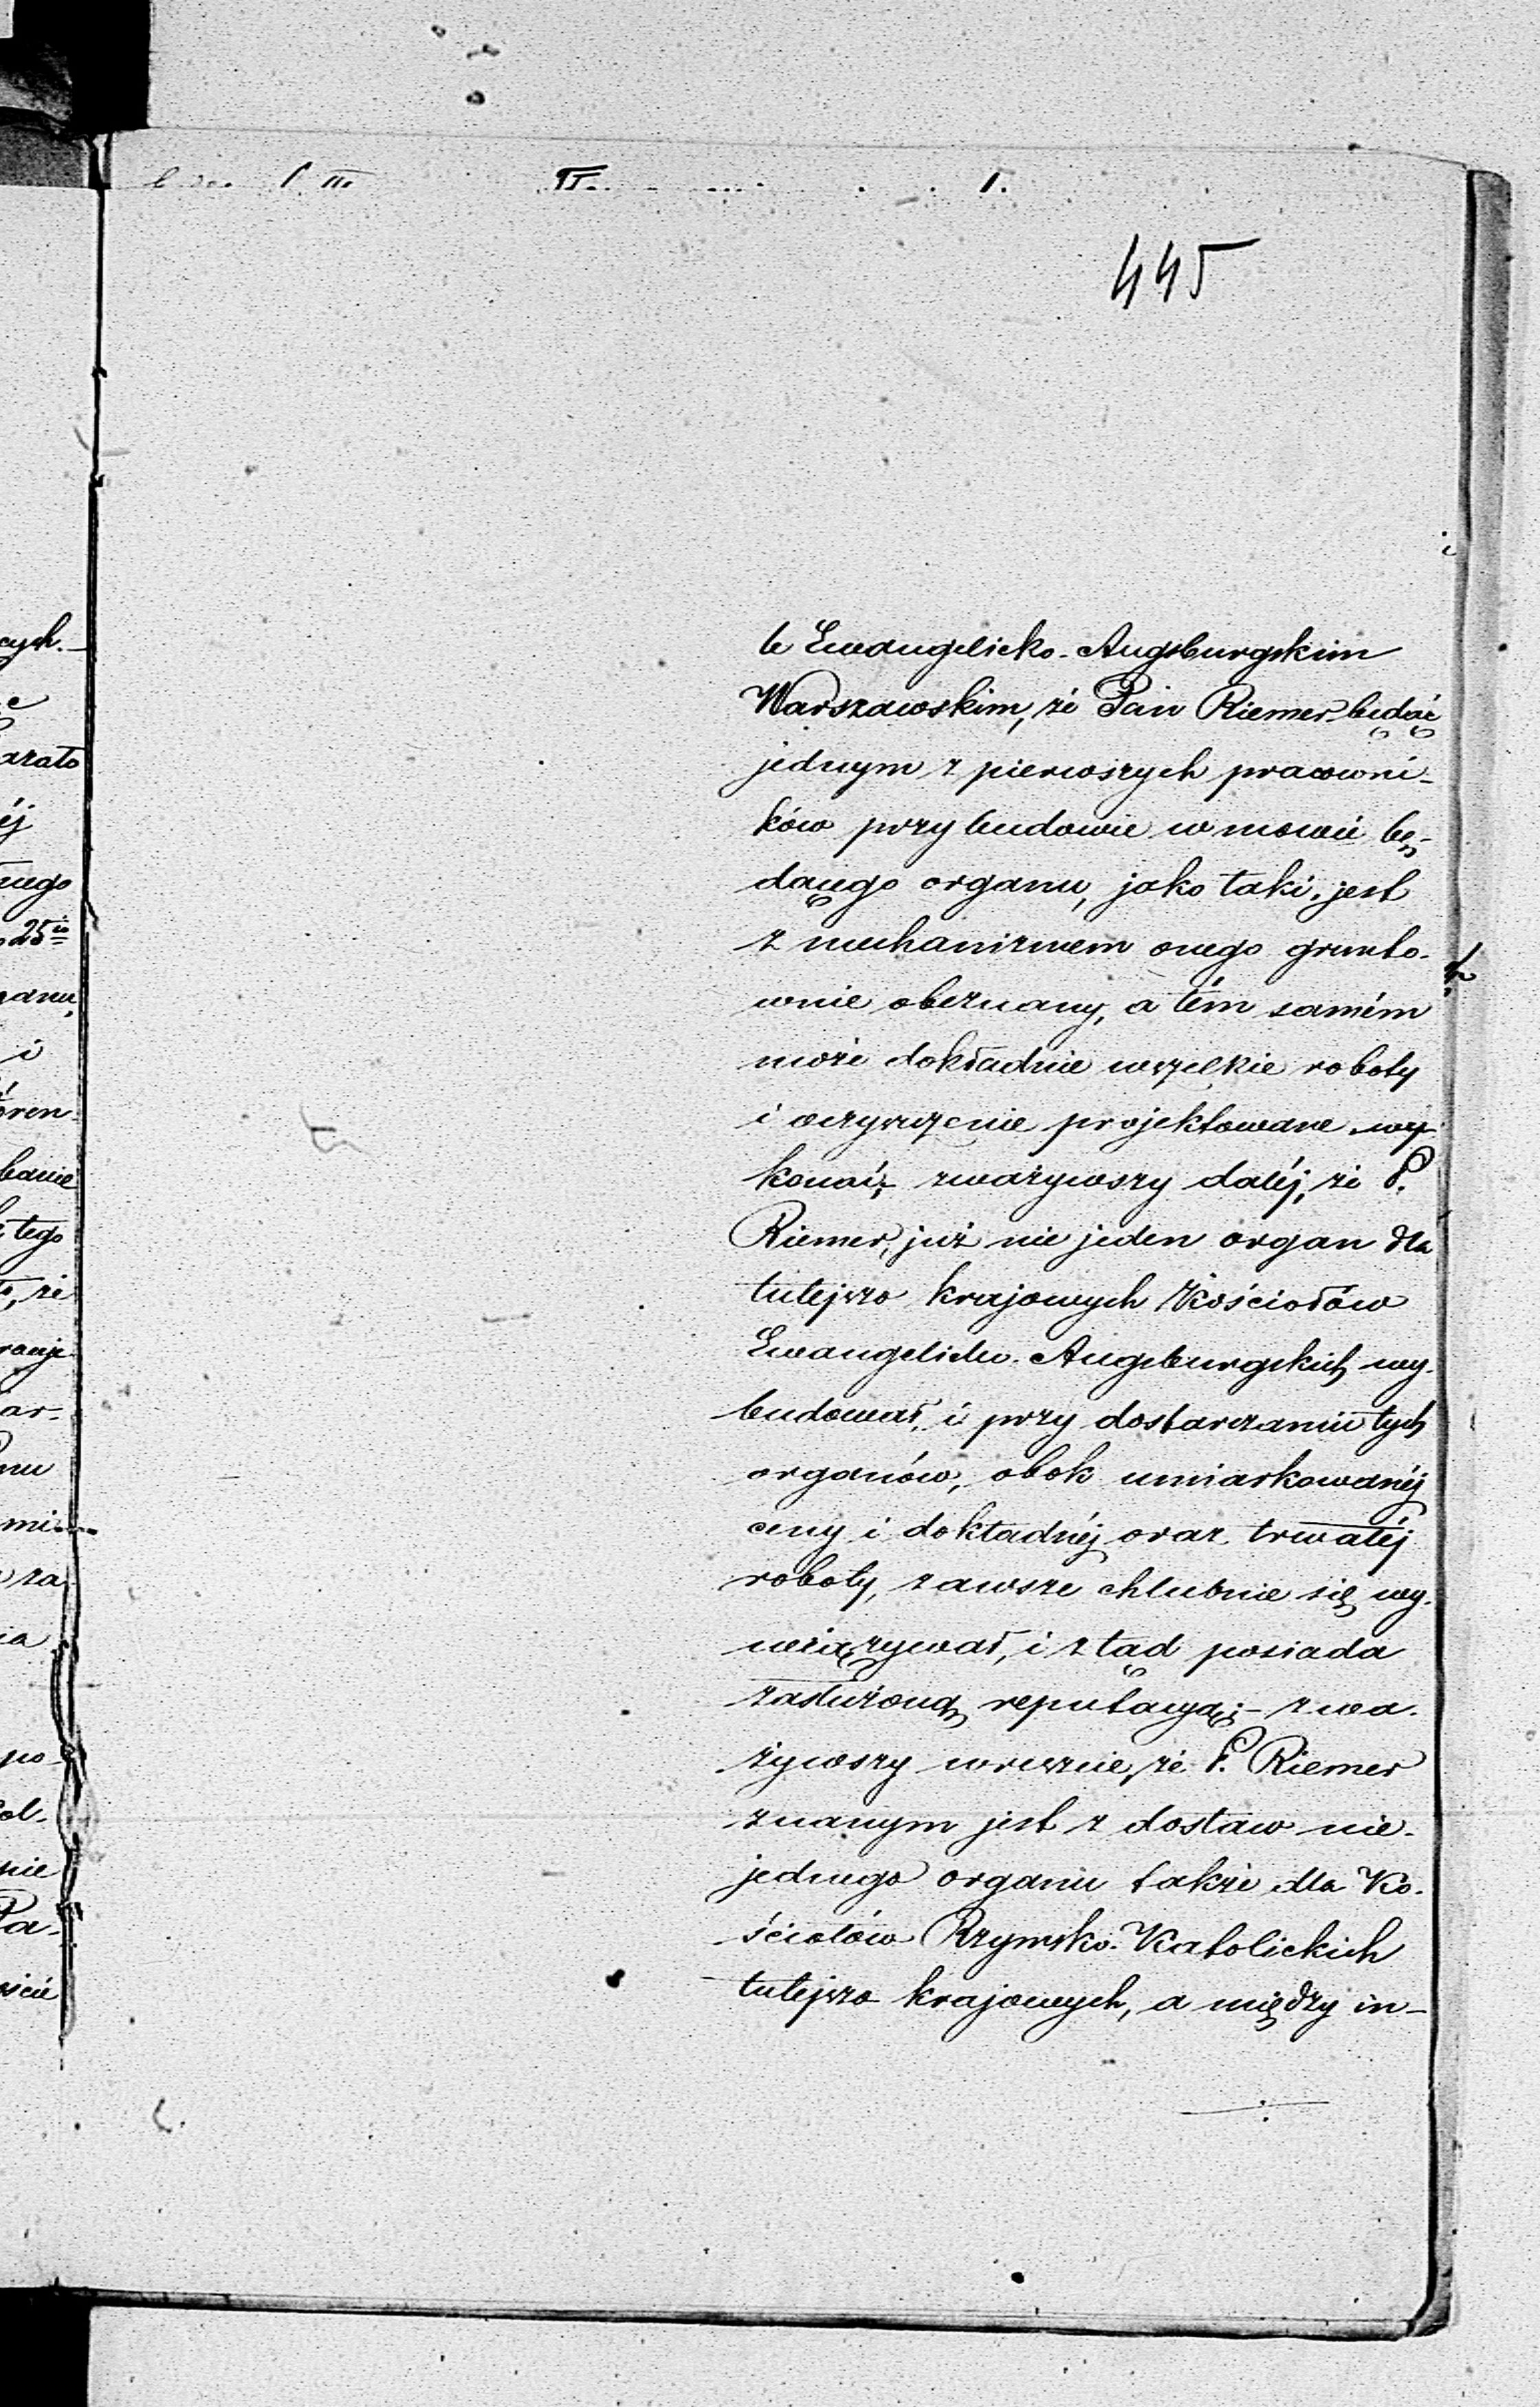 445
le Ewangelicko-Augsburgskim
Warszawskim, że Pan Riemer będąc
jednym z pierwszych pracowni-
ków przy budowie w mowie bę-
dącego organu, jako taki, jest
z mechanizmem onego grunto-
wnie obeznany, a tém samém
może dokładnie wszelkie roboty
i oczyszczenie projektowane wy-
konać; zważywszy daléj, że P.
Riemer, już nie jeden organ dla
tutejszo krajowych Kościołów
Ewangelicko-Augsburgskich wy-
budował, i przy dostarczaniu tych
organów, obok umiarkowanéj
ceny i dokładnéj oraz trwałéj
roboty, zawsze chlubnie się wy-
wiązywał, i ztąd posiada
zasłużoną reputacyą; - zwa-
żywszy wreszcie, że P. Riemer
znanym jest z dostaw nie-
jednego organu także dla Ko-
ściołów Rzymsko-Katolickich
tutejszo krajowych, a między in-